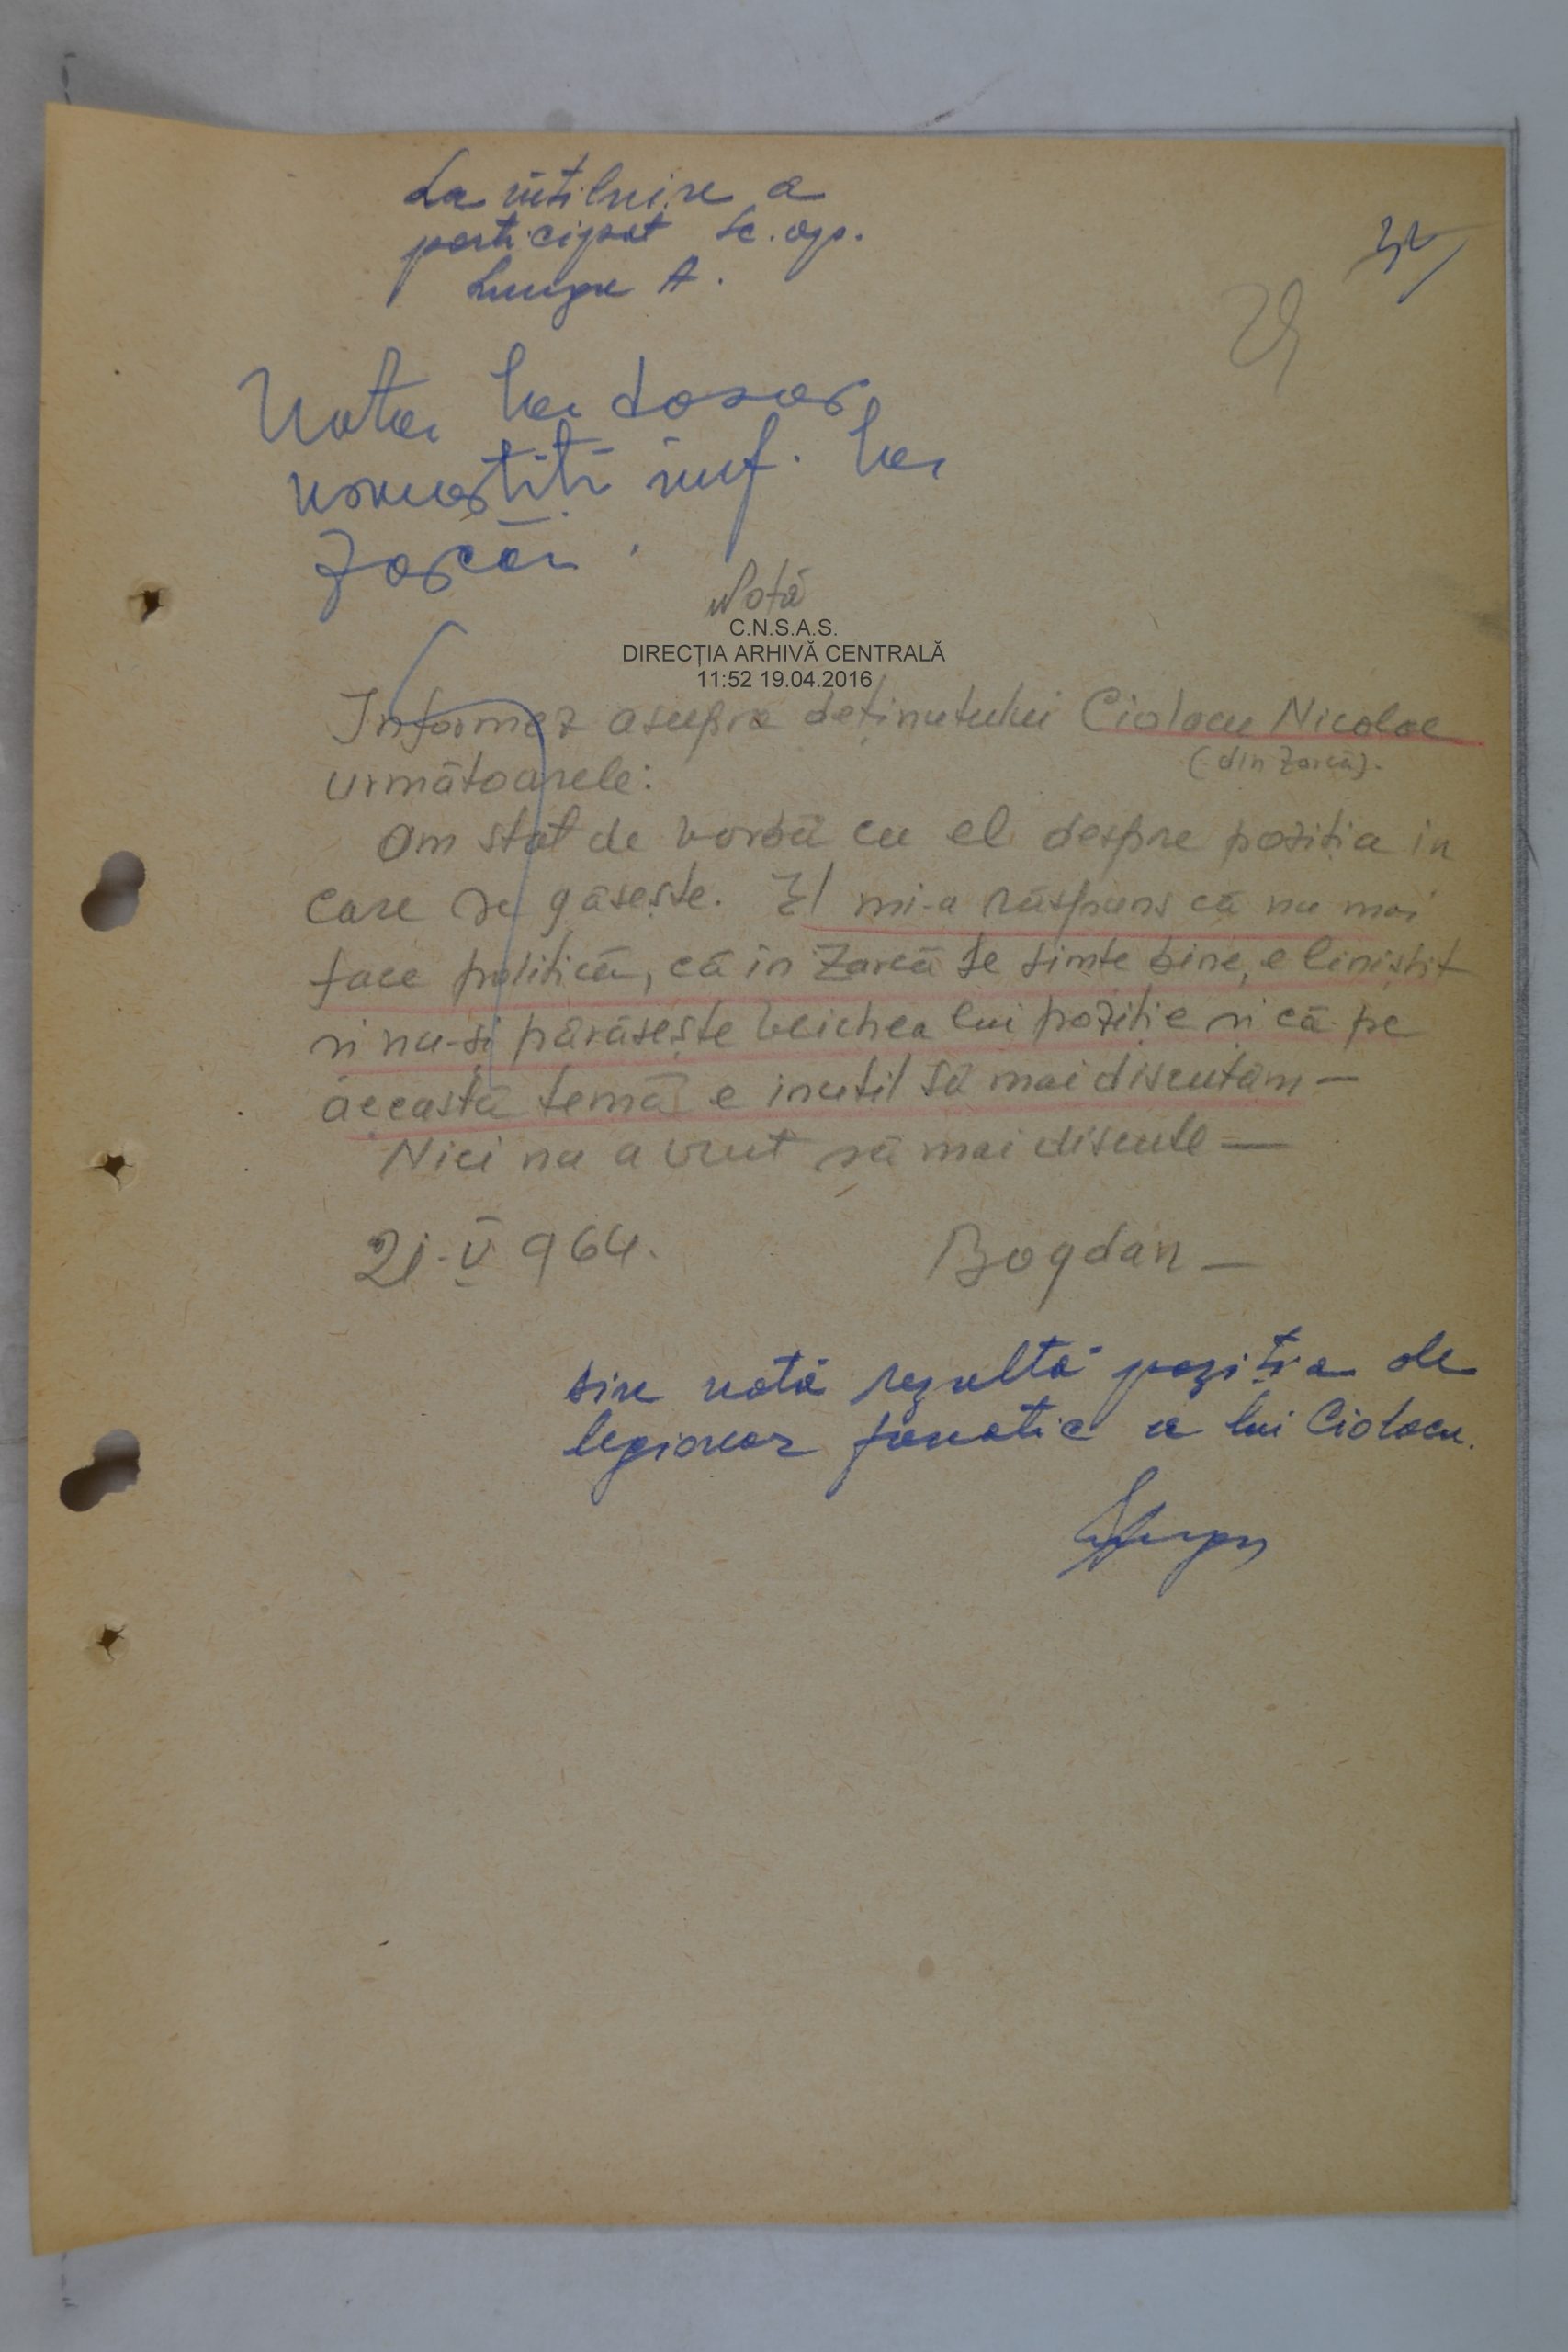 La întîlnire a
participat Lt. op.
Lungu A.
32
29
Nota la dosar
inf. la
Zarcă.
Notă
C.N.S.A.S.
DIRECȚIA ARHIVĂ CENTRALĂ
11:52 19.04.2016
Informez asupra deținutului Ciolacu Nicolae
(din Zarcă).
următoarele:
Am stat de vorbă cu el despre poziția în
care se găsește. El mi-a răspuns că nu mai
face politică, că în Zarcă se simte bine, e liniștit
și nu-și părăsește vechea lui poziție și că pe
această temă e inutil să mai discutăm —
Nici nu a vrut să mai discute —
21.V 964.
Bogdan —
Din notă rezultă poziția de
legionar fanatic a lui Ciolacu.